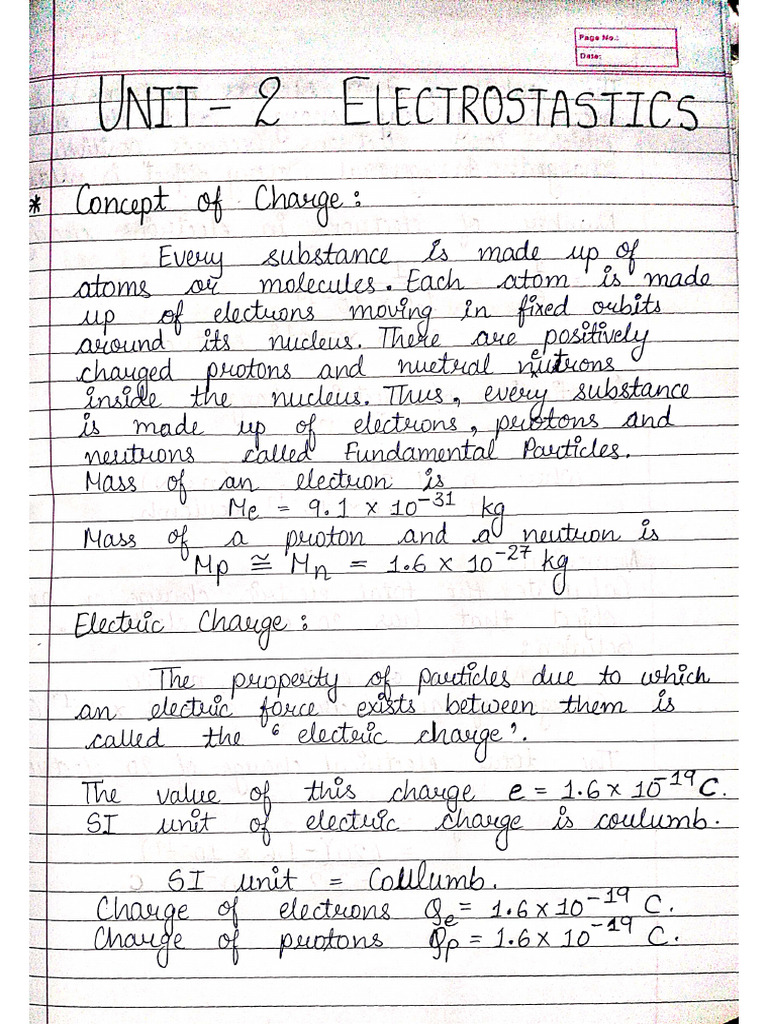 Page No.:
Date:
UNIT - 2 ELECTROSTASTICS
* Concept of Charge :
Every substance is made up of
atoms or molecules. Each atom is made
up of electrons moving in fixed orbits
around its nucleus. There are positively
charged protons and nuetral neutrons
inside the nucleus. Thus, every substance
is made up of electrons, protons and
neutrons called Fundamental Particles.
Mass of an electron is
Me = 9.1 × 10⁻³¹ kg
Mass of a proton and a neutron is
Mp ≅ Mn = 1.6 × 10⁻²⁷ kg
Electric Charge :
The property of particles due to which
an electric force exists between them is
called the ‘ electric charge’.
The value of this charge e = 1.6 × 10⁻¹⁹ C.
SI unit of electric charge is coulumb.
SI unit = Coulumb.
Charge of electrons Qe = 1.6 × 10⁻¹⁹ C.
Charge of protons Qp = 1.6 × 10⁻¹⁹ C.